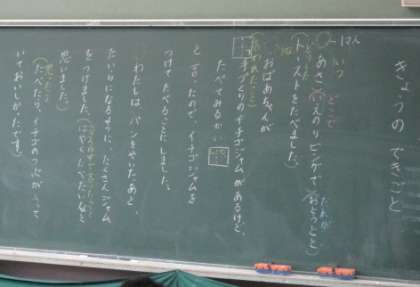 きょうのできごと
だれが
いつ
どこで
あさ、いえのリビングで(おとうとと)
トーストをたべました。
おばあちゃんが
手づくりのイチゴジャムがあるけど、
たべてみるかい
と言ったので、イチゴジャムを
つけてたべることにしました。
わたしは、パンをやいたあと、
たいらになるように、たくさんジャム
をつけました。(はやくたべたいなと
思いました)
たべたら、イチゴのつぶがくて
いておいしかったです。